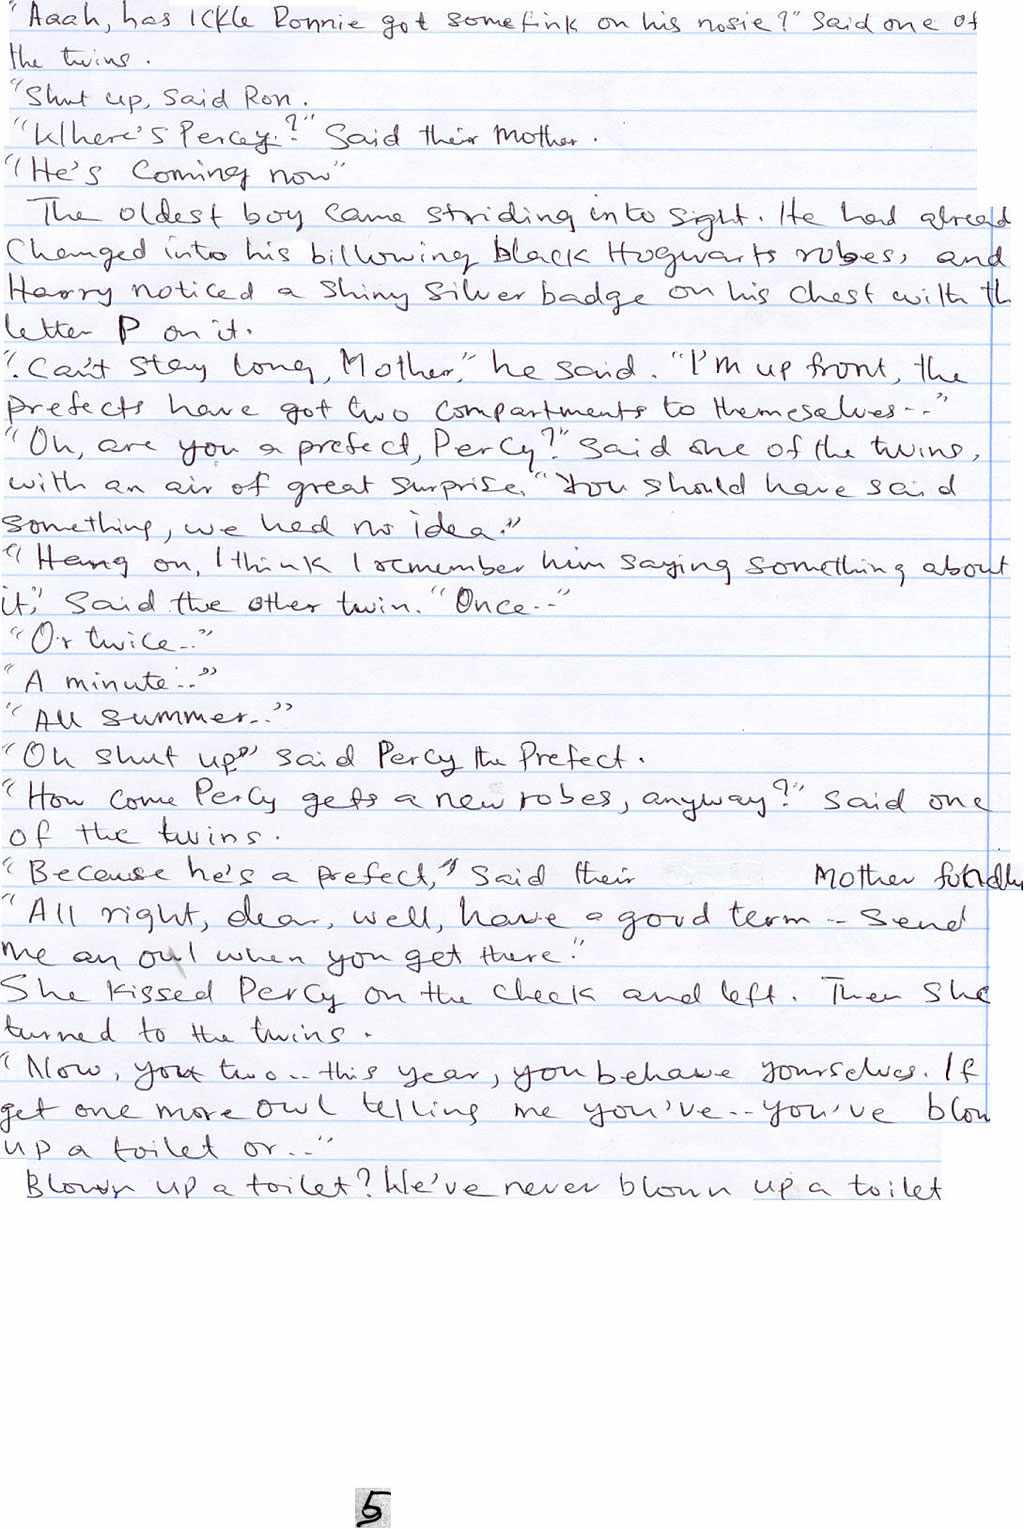 "Aaah, has ickle Ronnie got somefink on his nosie?" Said one of
the twins.
"Shut up, Said Ron.
"Where's Percy?" Said their Mother.
"He's coming now"
The oldest boy came striding into sight. He had alread
changed into his billowing black Hogwarts robes, and
Harry noticed a shiny silver badge on his chest with th
letter P on it.
"Can't stay long, Mother," he said. "I'm up front, the
prefects have got two compartments to themeselves--"
"Oh, are you a prefect, Percy?" said one of the twins,
with an air of great surprise. "You should have said
something, we had no idea."
"Hang on, I think I remember him saying something about
it," said the other twin. "Once--"
"Or twice--"
"A minute--"
"All summer--"
"Oh shut up," said Percy the Prefect.
"How come Percy gets a new robes, anyway?" said one
of the twins.
"Because he's a prefect," said their Mother fondly
"All right, dear, well, have a good term -- send
me an owl when you get there."
She kissed Percy on the cheek and left. Then she
turned to the twins.
"Now, you two -- this year, you behave yourselves. If
get one more owl telling me you've -- you've blow
up a toilet or --"
Blown up a toilet? We've never blown up a toilet
5